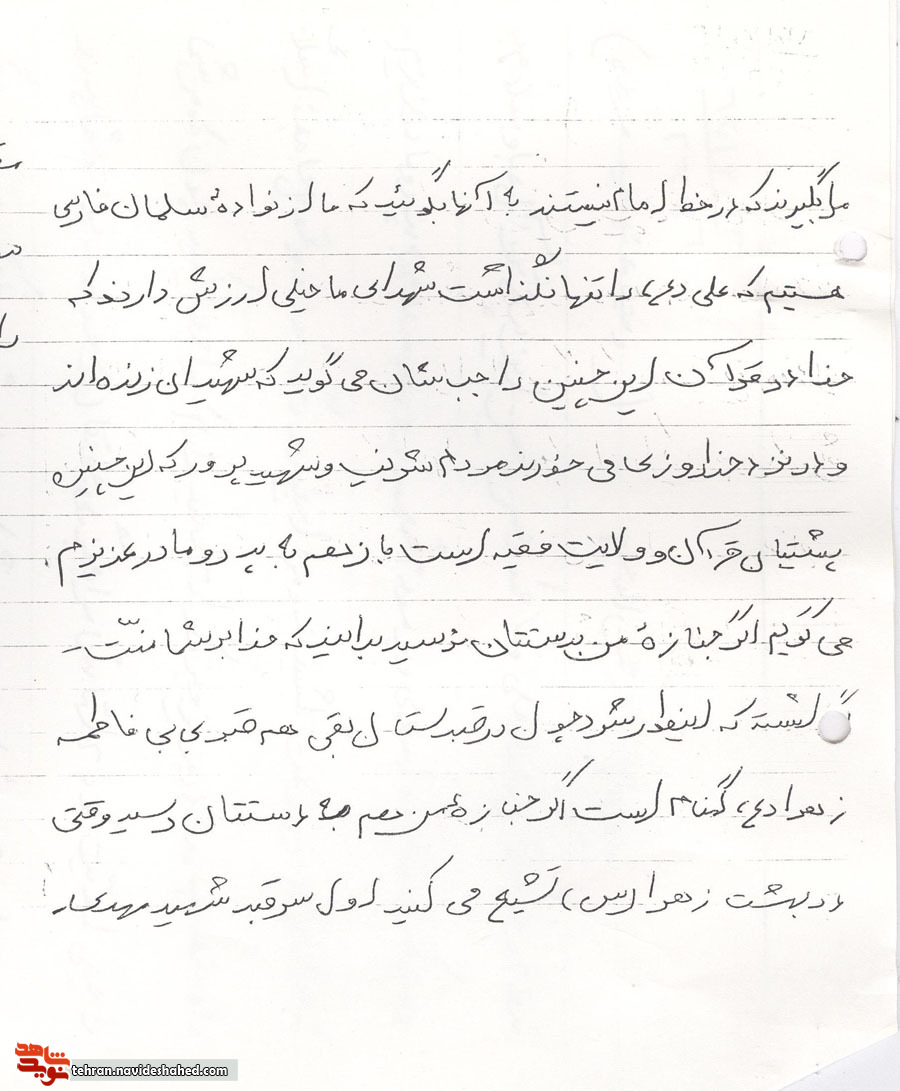 ما بگیرند که در خط امام نیستند به آنها بگوئید که ما از نوادهٔ سلمان فارسی
هستیم که علی (ع) را تنها نگذاشت شهدای ما خیلی ارزش دارند که
خدا در قرآن این چنین راجبشان می گوید که شهیدان زنده اند
و در نزد خدا روزی می خورند مردم شریف و شهید پرور که این چنین
پشتیبان قرآن و ولایت فقیه است باز هم به پدر و مادر عزیزم
می گویم اگر جنازهٔ من بدستتان نرسید بدانید که خدا بر شما منّت
گذاشته که اینطور شود چون در قبرستان بقی هم قبر بی بی فاطمه
زهرا (ع) گمنام است اگر جنازهٔ من هم به دستتان رسید وقتی
در بهشت زهرا (س) تشیع می کنید اول سر قبر شهید مهدی
شاهد
نوید
tehran.navideshahed.com